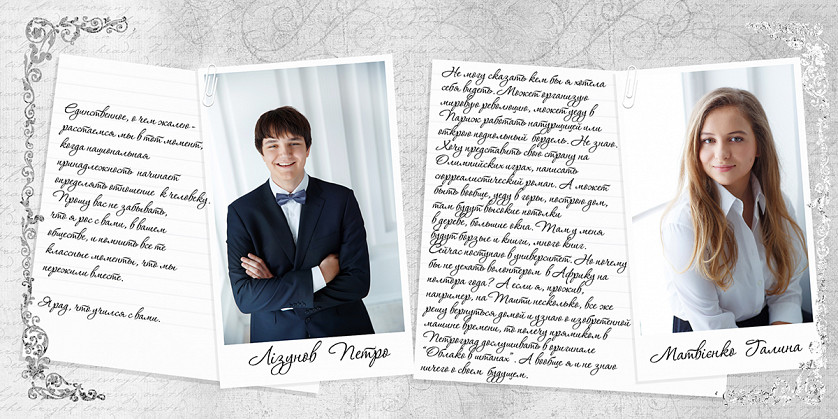 Единственное, о чем жалею -
расстаемся мы в тот момент,
когда национальная
принадлежность начинает
определять отношение к человеку.
Прошу вас не забывать,
что я рос с вами, в вашем
обществе, и помнить все те
классные моменты, что мы
пережили вместе.
Я рад, что учился с вами.
Лізунов Петро
Не могу сказать кем бы я хотела
себя видеть. Может организую
мировую революцию, может уеду в
Париж работать натурщицей или
открою подпольный бордель. Не знаю.
Хочу представить свою страну на
Олимпийских играх, написать
сюрреалистический роман. А может
быть вообще, уеду в горы, построю дом,
там будут высокие потолки
в дереве, большие окна. Там у меня
будут борзые и книги, много книг.
Сейчас поступаю в университет. Но почему
бы не уехать волонтером в Африку на
полтора года? А если я, прожив,
например, на Таити несколько, все же
решу вернуться домой и узнаю о изобретенной
машине времени, то полечу прямиком в
Петроград дослушивать в оригинале
"Облако в штанах". А вообще я и не знаю
ничего о своем будущем.
Матвієнко Галина